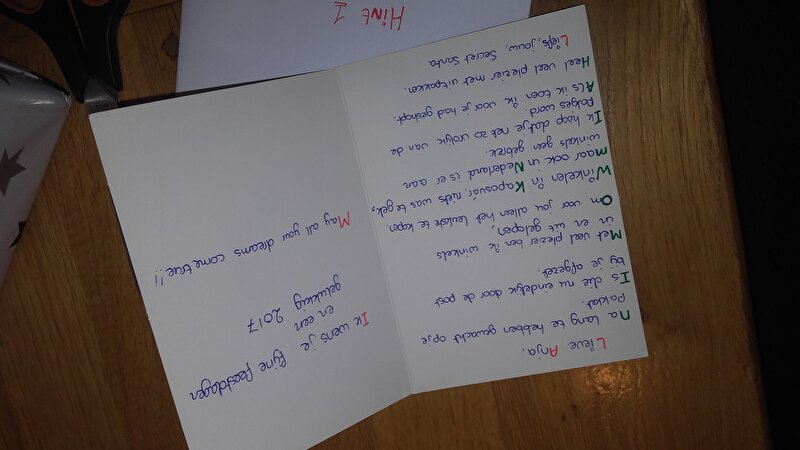 Lieve Anja,
Na lang te hebben gewacht op je
Pakket.
Is die nu eindelijk door de post
bij je afgezet.
Met veel plezier ben ik winkels
in en uit gelopen,
Om voor jou alleen het leukste te kopen.
Winkelen in Kaposvár, niets was te gek,
maar ook in Nederland is er aan
winkels geen gebrek.
Ik hoop dat je net zo vrolijk van de
pakjes word.
Als ik toen ik voor je had geshopt.
Heel veel plezier met uitpakken.
Liefs, jouw, Secret Santa
Ik wens je fijne feestdagen
en een
gelukkig 2017
May all your dreams come true!!
Hint 1